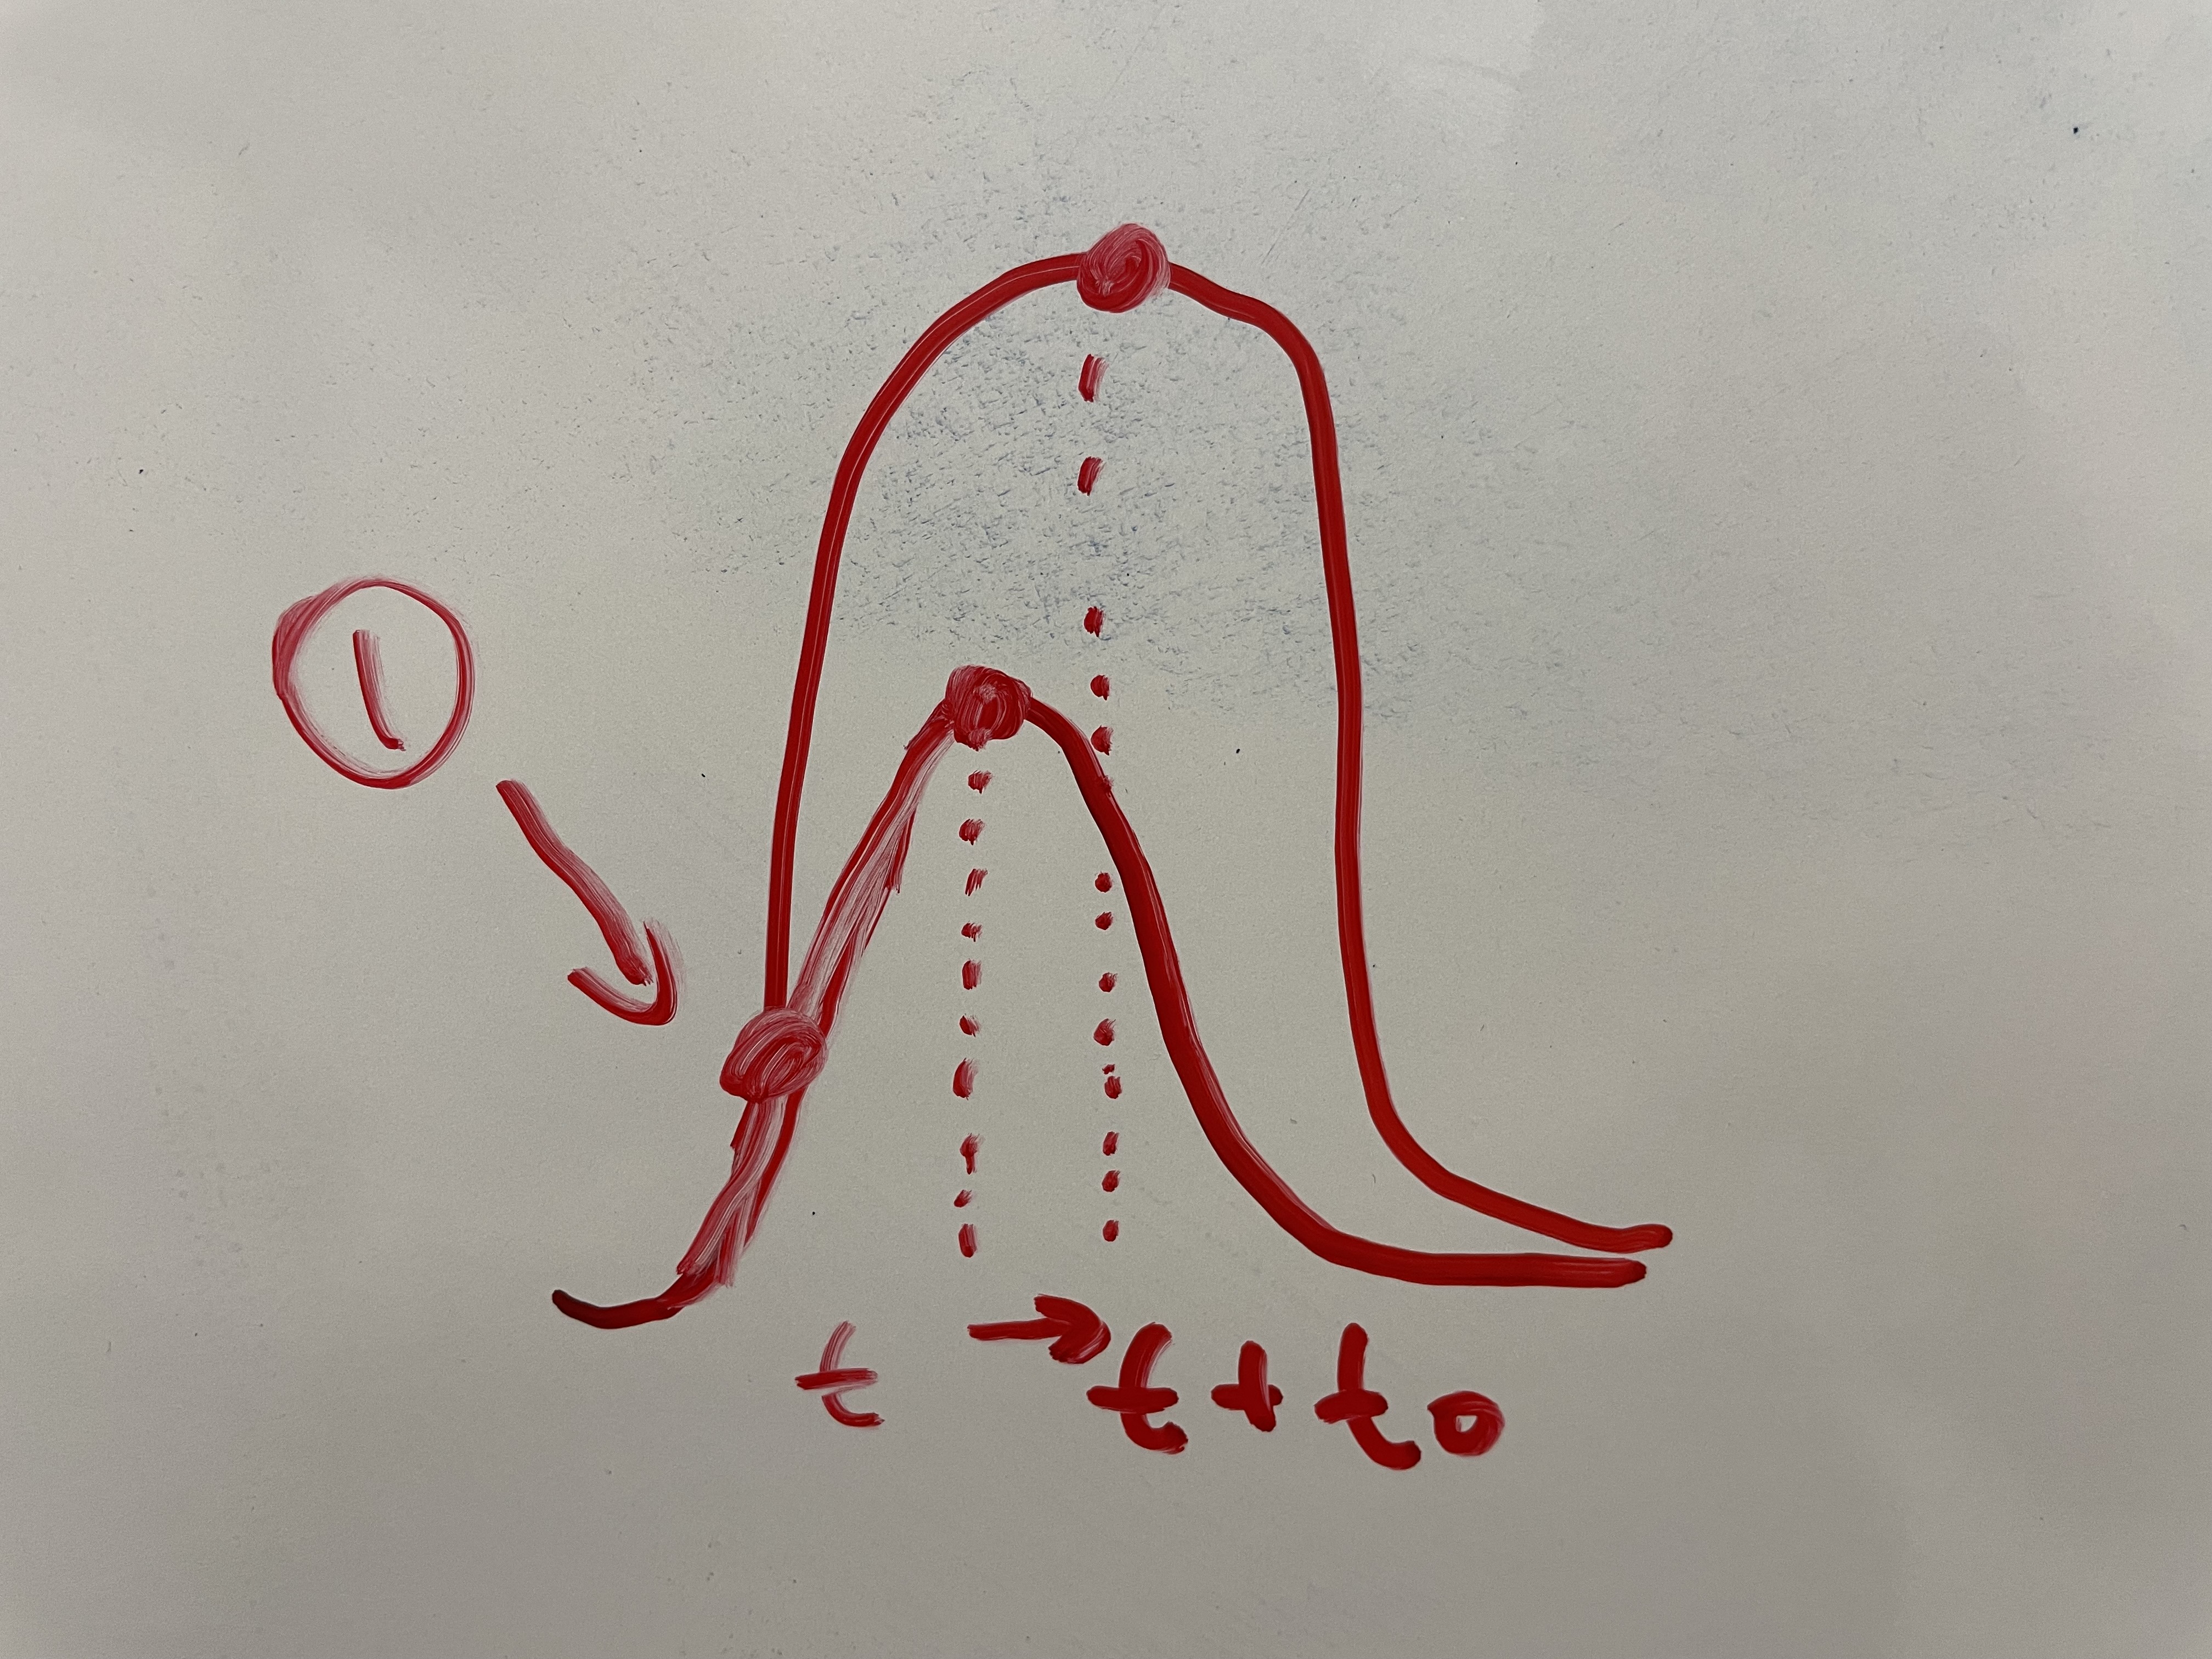 1
t → t + t0